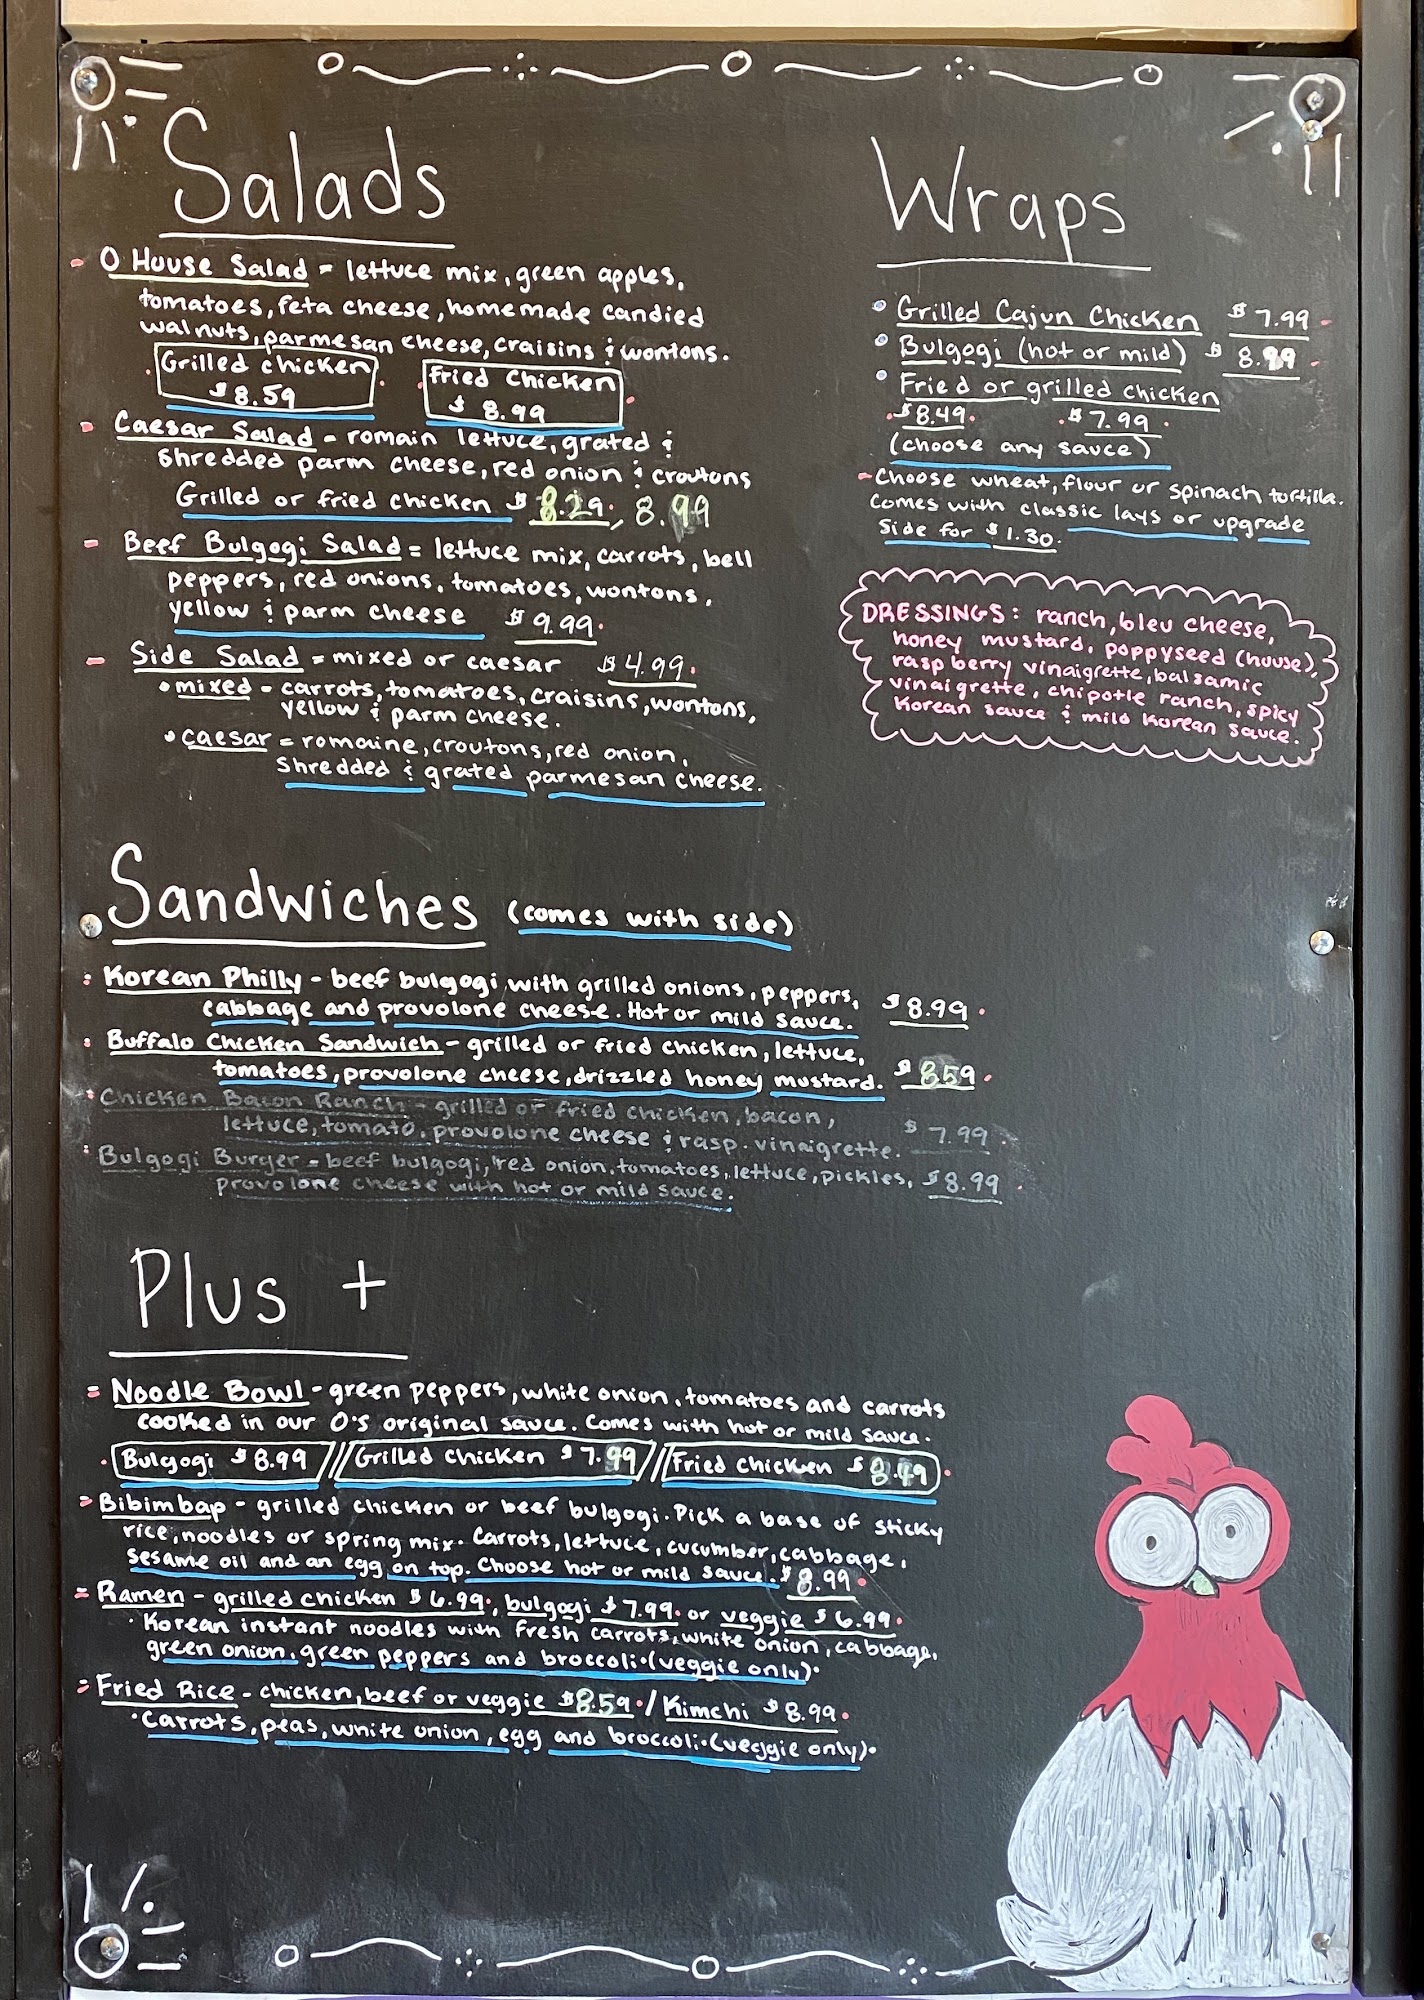 Salads
- O House Salad = lettuce mix, green apples,
tomatoes, feta cheese, homemade candied
walnuts, parmesan cheese, craisins & wontons.
Grilled chicken
$8.59
Fried Chicken
$ 8.99
- Caesar Salad - romain lettuce, grated &
shredded parm cheese, red onion & croutons
Grilled or fried chicken $ 8.29, 8.99
- Beef Bulgogi Salad = lettuce mix, carrots, bell
peppers, red onions, tomatoes, wontons,
yellow & parm cheese $ 9.99
- Side Salad = mixed or caesar $4.99
• mixed - carrots, tomatoes, craisins, wontons,
yellow & parm cheese.
• caesar = romaine, croutons, red onion,
shredded & grated parmesan cheese.
Wraps
• Grilled Cajun Chicken $ 7.99
• Bulgogi (hot or mild) $ 8.99
• Fried or grilled chicken
$8.49 $7.99
(choose any sauce)
- Choose wheat, flour or spinach tortilla.
Comes with classic lays or upgrade
side for $1.30.
DRESSINGS: ranch, bleu cheese,
honey mustard, poppyseed (house),
raspberry vinaigrette, balsamic
vinaigrette, chipotle ranch, spicy
Korean sauce & mild Korean sauce.
Sandwiches (comes with side)
: Korean Philly - beef bulgogi with grilled onions, peppers, $8.99
cabbage and provolone cheese. Hot or mild sauce.
: Buffalo Chicken Sandwich - grilled or fried chicken, lettuce,
tomatoes, provolone cheese, drizzled honey mustard. $ 8.59
: Chicken Bacon Ranch - grilled or fried chicken, bacon,
lettuce, tomato, provolone cheese & rasp. vinaigrette. $ 7.99
: Bulgogi Burger - beef bulgogi, red onion, tomatoes, lettuce, pickles, $8.99
provolone cheese with hot or mild sauce.
Plus +
= Noodle Bowl - green peppers, white onion, tomatoes and carrots
cooked in our O'S original sauce. Comes with hot or mild sauce.
Bulgogi $8.99 // Grilled chicken $7.99 // Fried chicken $8.49
= Bibimbap - grilled chicken or beef bulgogi. Pick a base of sticky
rice, noodles or spring mix. Carrots, lettuce, cucumber, cabbage,
sesame oil and an egg on top. Choose hot or mild sauce. $8.99
= Ramen - grilled chicken $6.99, bulgogi $7.99 or veggie $6.99
• Korean instant noodles with fresh carrots, white onion, cabbage,
green onion, green peppers and broccoli. (veggie only).
= Fried Rice - chicken, beef or veggie $8.59 / Kimchi $8.99
• Carrots, peas, white onion, egg and broccoli. (veggie only).